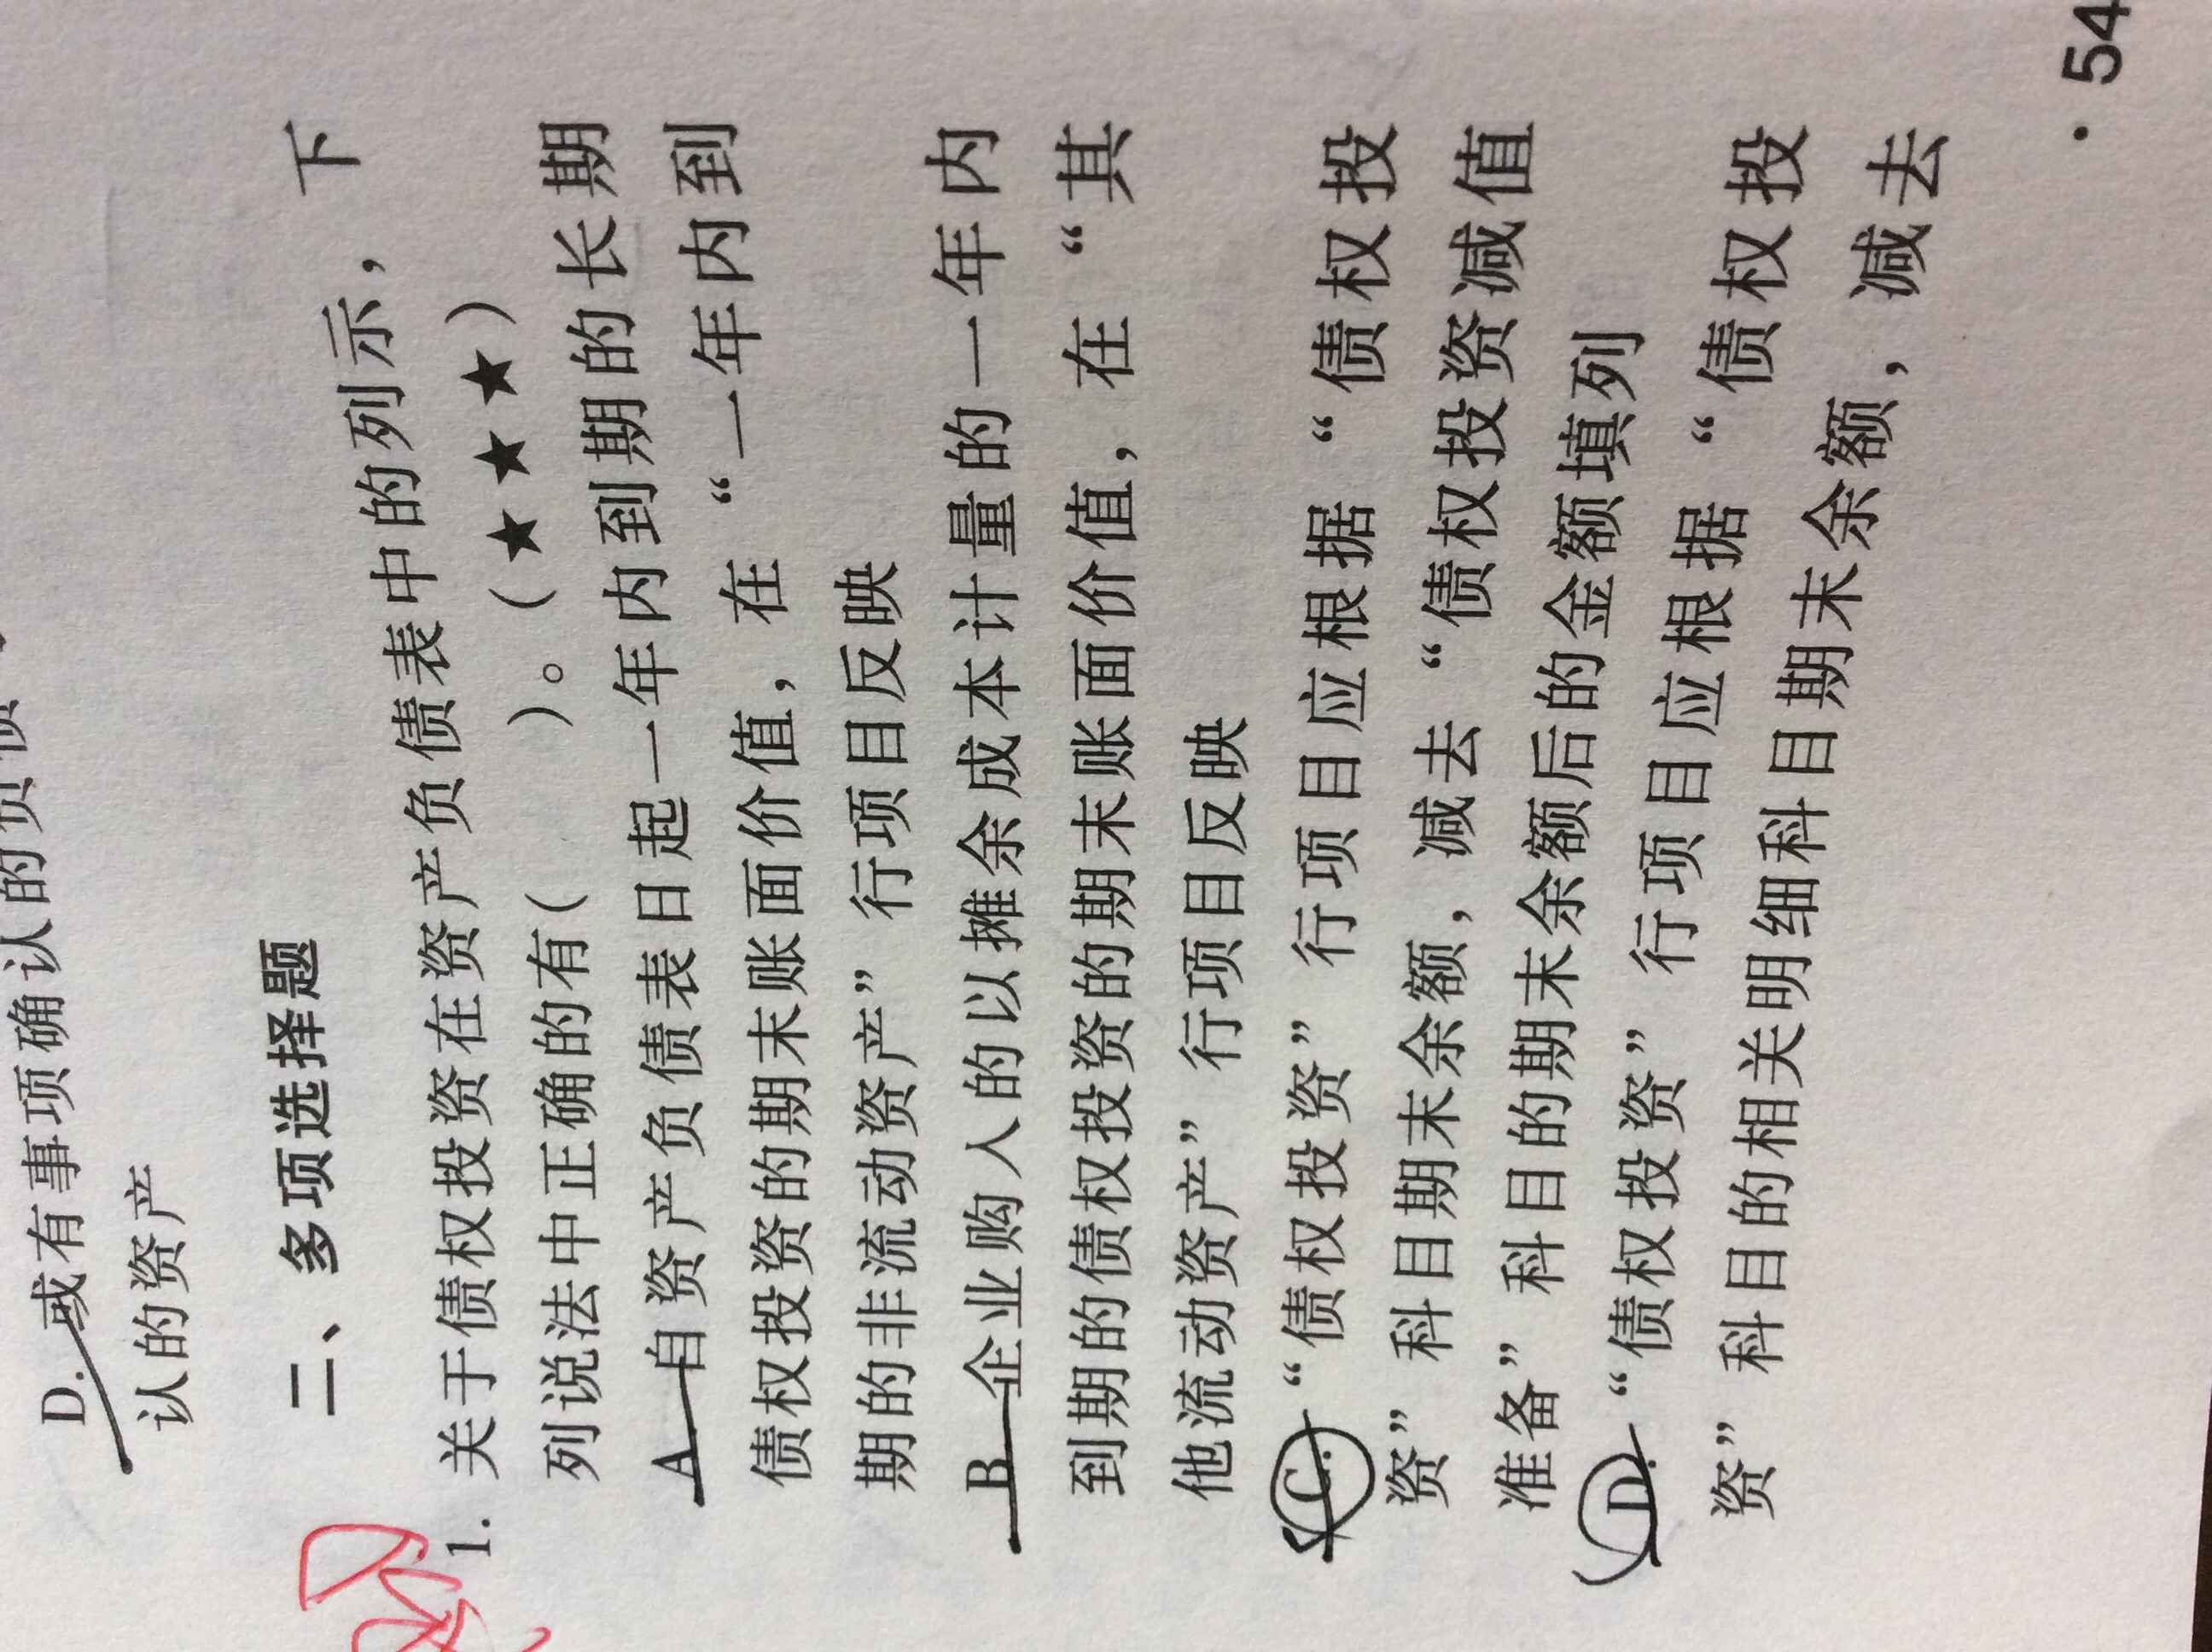 事项确认的负债
D. 或有
认的资产
二、多项选择题
1. 关于债权投资在资产负债表中的列示，下
列说法中正确的有(　　)。(★★★)
A 自资产负债表日起一年内到期的长期
债权投资的期末账面价值，在“一年内到
期的非流动资产”行项目反映
B 企业购人的以摊余成本计量的一年内
到期的债权投资的期末账面价值，在“其
他流动资产”行项目反映
C.“债权投资”行项目应根据“债权投
资”科目期末余额，减去“债权投资减值
准备”科目的期末余额后的金额填列
D.“债权投资”行项目应根据“债权投
资”科目的相关明细科目期末余额，减去
· 54